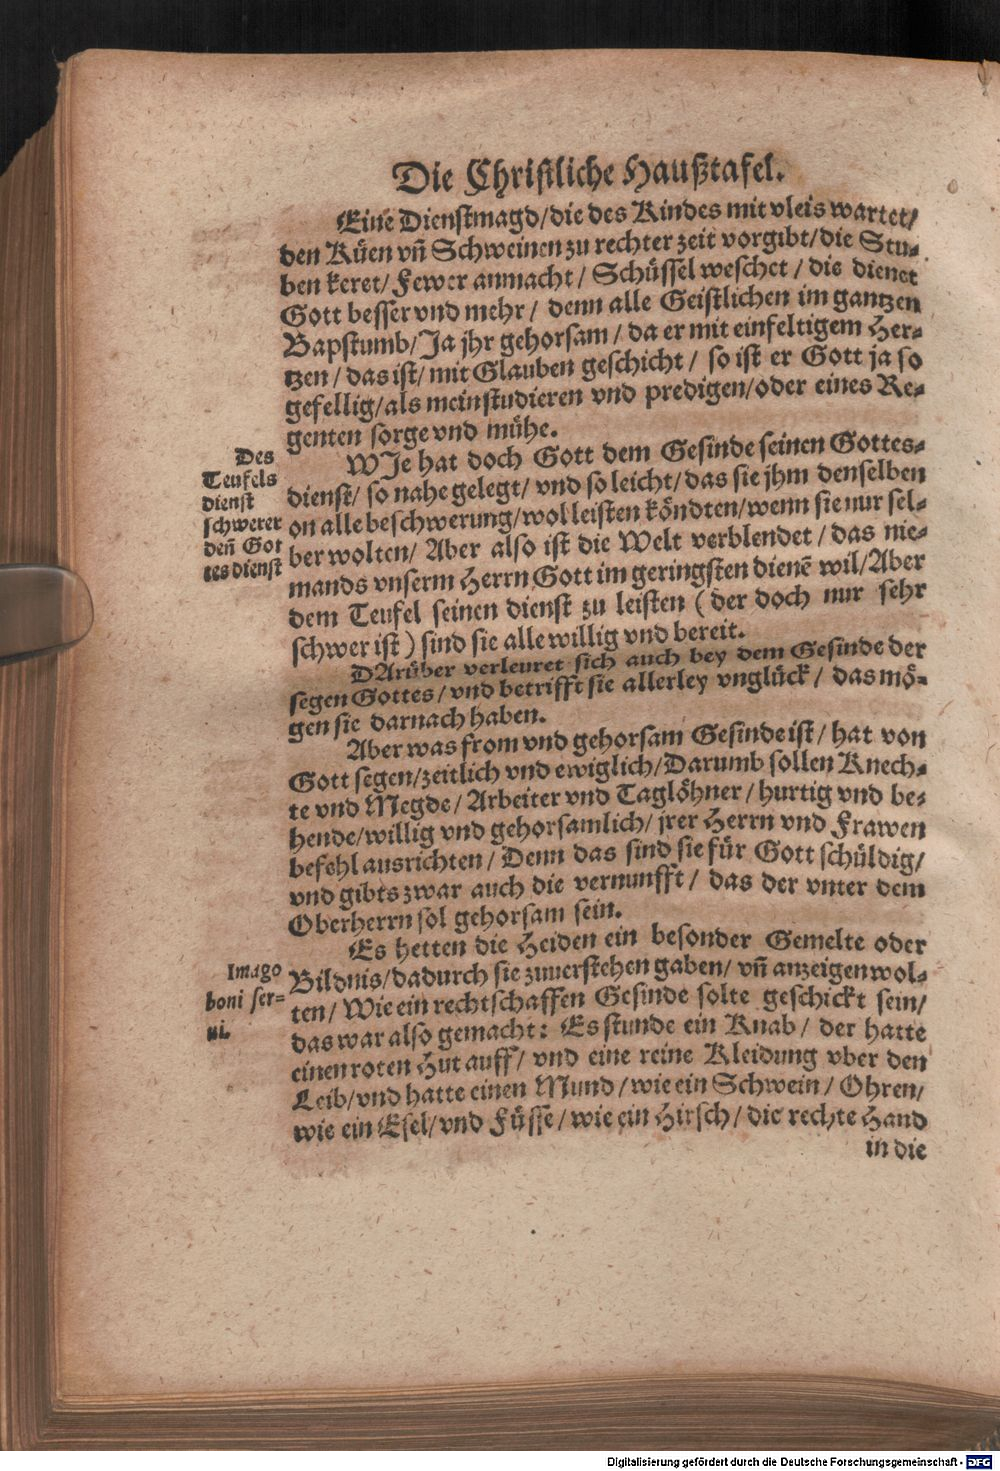 Die Christliche Haußtafel.
Eine Dienstmagd/die des Kindes mit vleis wartet/
den Küen vñ Schweinen zu rechter zeit vorgibt/die Stu-
ben keret/Fewer anmacht/Schüssel weschet/die dienet
Gott besser vnd mehr/denn alle Geistlichen im gantzen
Bapstumb/Ja jhr gehorsam/da er mit einfeltigem Her-
tzen/das ist/mit Glauben geschicht/so ist er Gott ja so
gefellig/als mein studieren vnd predigen/oder eines Re-
genten sorge vnd mühe.
Des
Teufels
dienst
schwerer
deñ Got
tes dienst
WJe hat doch Gott dem Gesinde seinen Gottes-
dienst/so nahe gelegt/vnd so leicht/das sie jhm denselben
on alle beschwerung/wol leisten köndten/wenn sie nur sel-
ber wolten/Aber also ist die Welt verblendet/das nie-
mands vnserm Herrn Gott im geringsten dienẽ wil/Aber
dem Teufel seinen dienst zu leisten (der doch nur sehr
schwer ist) sind sie alle willig vnd bereit.
DArüber verleuret sich auch bey dem Gesinde der
segen Gottes/vnd betrifft sie allerley vnglück/das mö-
gen sie darnach haben.
Aber was from vnd gehorsam Gesinde ist/hat von
Gott segen/zeitlich vnd ewiglich/Darumb sollen Knech-
te vnd Megde/Arbeiter vnd Taglöhner/hurtig vnd be-
hende/willig vnd gehorsamlich/jrer Herrn vnd Frawen
befehl ausrichten/Denn das sind sie für Gott schüldig/
vnd gibts zwar auch die vernunfft/das der vnter dem
Oberherrn sol gehorsam sein.
Imago
boni ser-
ui.
Es hetten die Heiden ein besonder Gemelte oder
Bildnis/dadurch sie zuuerstehen gaben/vñ anzeigen wol-
ten/Wie ein rechtschaffen Gesinde solte geschickt sein/
das war also gemacht: Es stunde ein Knab/der hatte
einen roten Hut auff/vnd eine reine Kleidung vber den
Leib/vnd hatte einen Mund/wie ein Schwein/Ohren/
wie ein Esel/vnd Füsse/wie ein Hirsch/die rechte Hand
in die
Digitalisierung gefördert durch die Deutsche Forschungsgemeinschaft - DFG